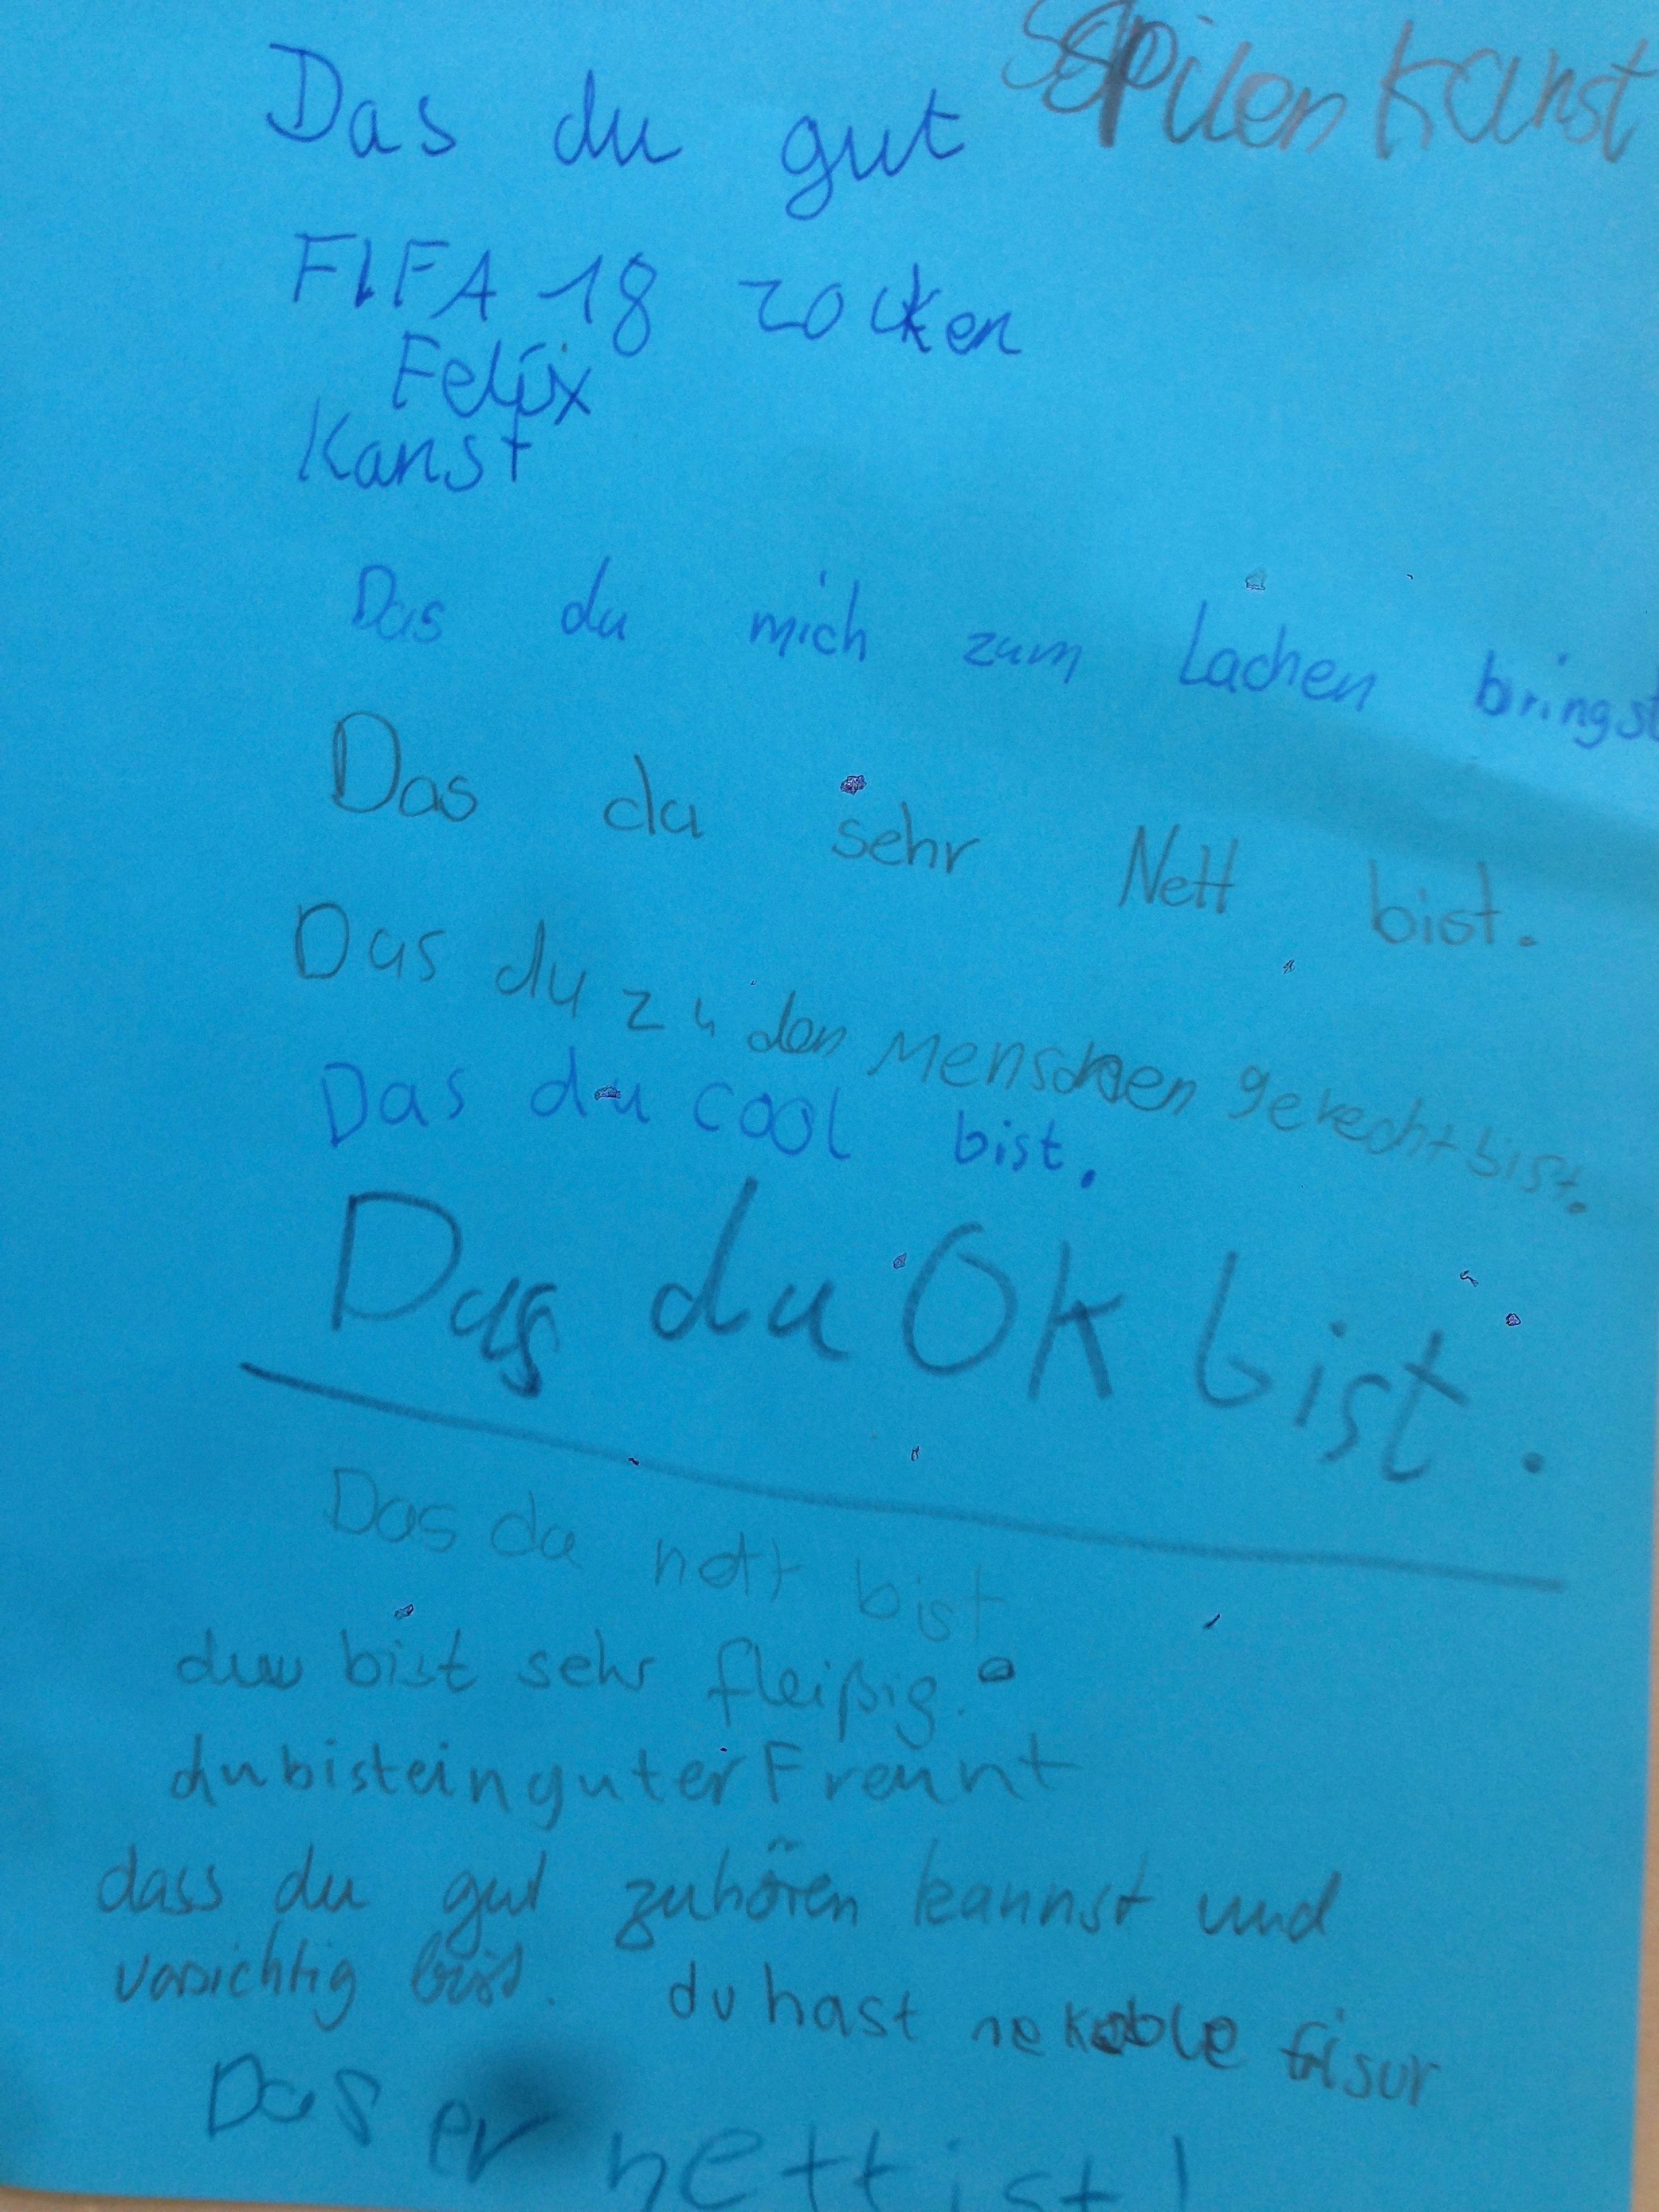 Das du gut Spilen kanst
FIFA 18 zocken
Felix
Kanst
Das du mich zum Lachen bringst
Das du sehr Nett bist.
Das du zu den Menschen gerecht bist.
Das du cool bist.
Das du Ok bist.
Das du nett bist
du bist sehr fleißig.
du bist ein guter Freunt
dass du gut zuhören kannst und
vorsichtig bist. du hast ne koole frisur
Das er nett ist!